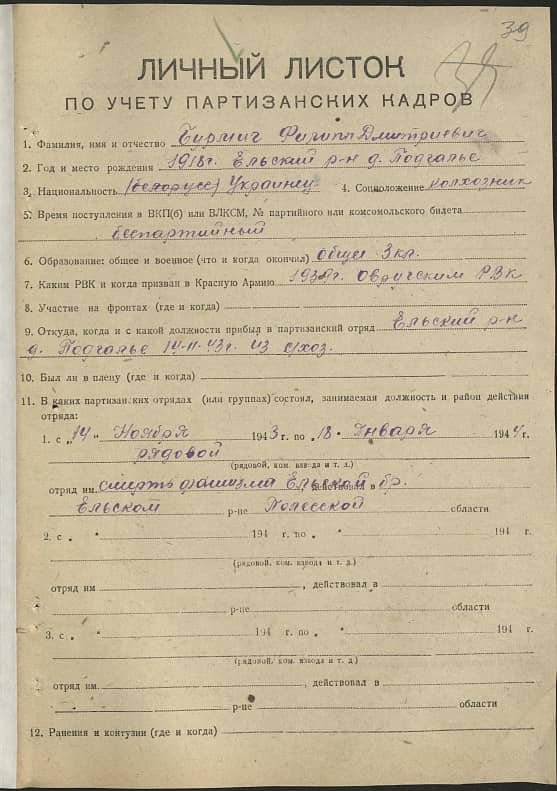 39
ЛИЧНЫЙ ЛИСТОК
ПО УЧЕТУ ПАРТИЗАНСКИХ КАДРОВ
1. Фамилия, имя и отчество Бирмич Филипп Дмитриевич
2. Год и место рождения 1918г. Ельский р-н д. Подгалье
3. Национальность (белорусс) Украинец 4. Соцположение колхозник
5. Время поступления в ВКП(б) или ВЛКСМ, № партийного или комсомольского билета
беспартийный
6. Образование: общее и военное (что и когда окончил) общее 3 кл.
7. Каким РВК и когда призван в Красную Армию 1939г. Овручским РВК
8. Участие на фронтах (где и когда)
9. Откуда, когда и с какой должности прибыл в партизанский отряд Ельский р-н
д. Подгалье 14-11-43г. из с/хоз.
10. Был ли в плену (где и когда)
11. В каких партизанских отрядах (или группах) состоял, занимаемая должность и район действия
отряда:
1. с „14" Ноября 1943 г. по „18" Января 1944 г.
рядовой
(рядовой, ком. взвода и т. д.)
отряд им. смерть фашизма Ельской бр. действовал в
Ельском р-не Полесской области
2. с „ " 194 г. по „ " 194 г.
(рядовой, ком. взвода и т. д.)
отряд им , действовал в
р-не области
3. с „ " 194 г. по „ " 194 г.
(рядовой, ком. взвода и т. д)
отряд им. , действовал в
р-не области
12. Ранения и контузии (где и когда)